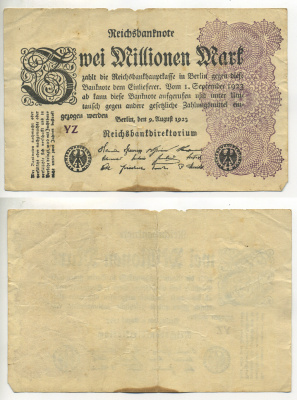 Reichsbanknote
Zwei Millionen Mark
zahlt die Reichsbankhauptkasse in Berlin gegen diese
Banknote dem Einlieferer. Vom 1. September 1923
ab kann diese Banknote aufgerufen und unter Um-
tausch gegen andere gesetzliche Zahlungsmittel ein-
gezogen werden
Berlin, den 9. August 1923
YZ
Reichsbankdirektorium